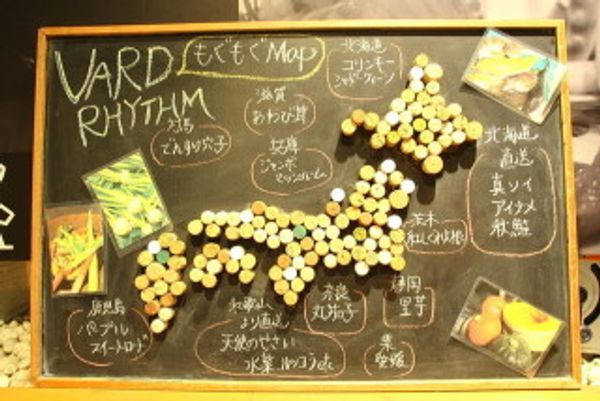 VARD
RHYTHM
もぐもぐMap
北海道
コリンキー
滋賀
あわび茸
対馬
でんすけ穴子
兵庫
ジャンボ
マッシュルーム
北海道
直送
真ソイ
アイナメ
秋鮭
茨木
紅しぐれ大根
静岡
里芋
奈良
丸茄子
和歌山
より直送
天使のやさい
水菜 ルッコラetc
栗
愛媛
鹿児島
パープル
スイートロード